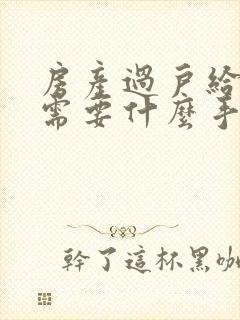 房產過戶給
需要什麼手
幹了這杯黑咖